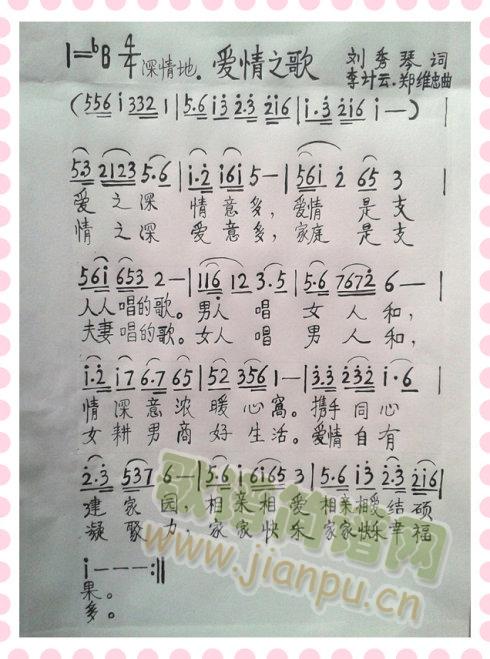 1=♭B 4/4 深情地. 爱情之歌 刘秀琴 词
李计云.郑维忠曲
(556 i 332 1 | 5.6 i3 2.3 2i6 | i.3 2i6 i —) |
5.3 2123 5.6 | i.2 i6i 5 — | 56i 2 65 3 |
爱之深 情意多，爱情 是支
情之深 爱意多，家庭 是支
56i 653 2 — | 116 12 3.5 | 5.6 7672 6 — |
人人唱的歌。男人 唱 女人和，
夫妻唱的歌。女人 唱 男人和，
i.2 i7 6.7 65 | 52 356 1 — | 3.3 232 i.6 |
情深意浓暖心窝。携手同心
女耕男商好生活。爱情自有
2.3 537 6 — | 5.6 i.6165 3 | 5.6 i3 2.3 2i6 |
建家园，相亲相爱 相亲相爱结硕
凝聚力，家家快乐 家家快乐幸福
i — — — :||
果。
多。
歌谱简谱网
www.jianpu.cn